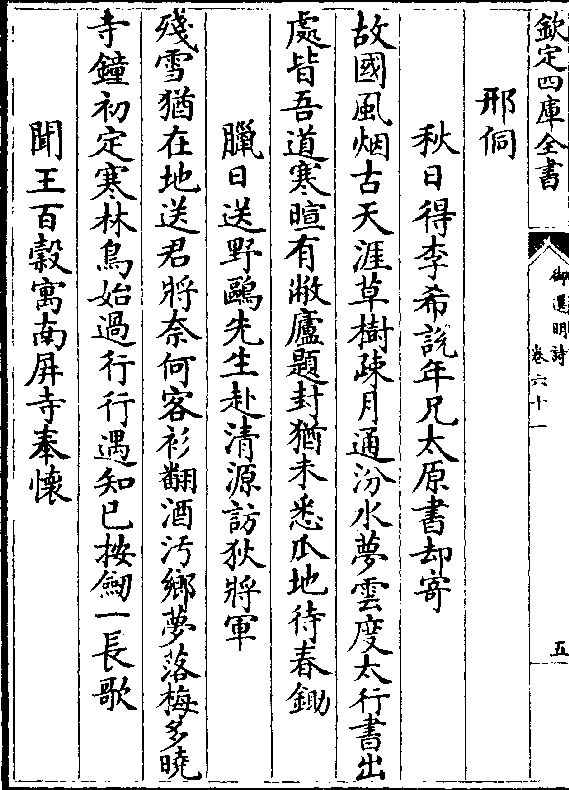 欽定四庫全書
御選明詩
卷六十一
五
邢侗
秋日得李希説年兄太原書却寄
故國風烟古天涯草樹疎月通汾水夢雲度太行書出
處皆吾道寒暄有敝廬題封猶未悉瓜地待春鋤
臘日送野鷗先生赴清源訪狄將軍
殘雪猶在地送君將奈何客衫翻酒汚鄉夢落梅多曉
寺鐘初定寒林鳥始過行行遇知已按劒一長歌
聞王百榖寓南屏寺奉懷